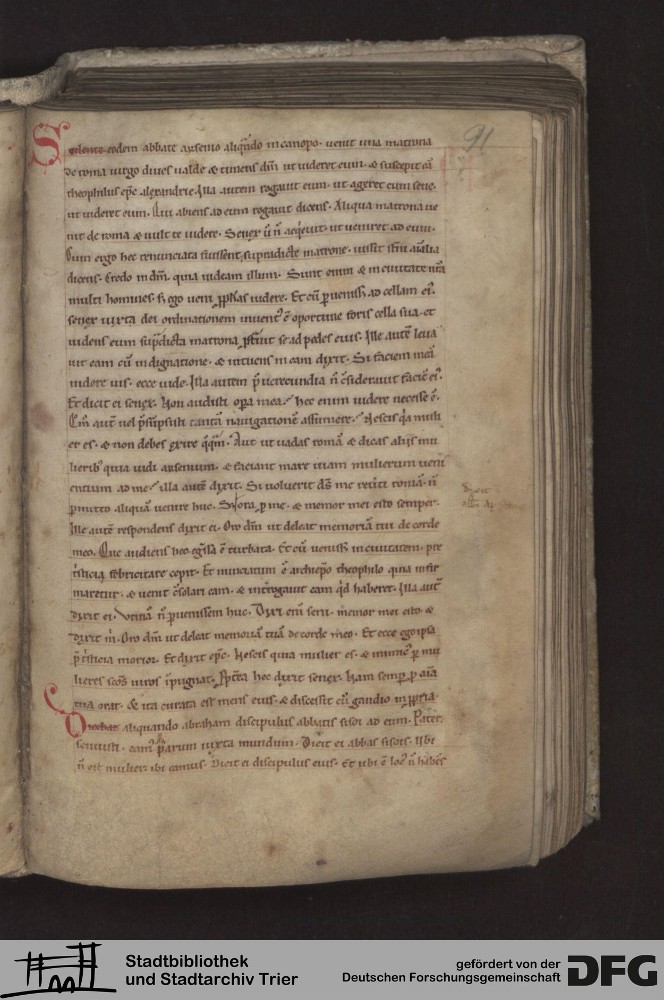 91
Sedente eodem abbate arsenio aliqñdo in canopo· venit una matrona
de roma virgo dives valde & timens dm̄ ut videret eum· & suscepit eā
theophilus epc̄ alexandrie. Illa autem rogavit eum· ut ageret cum sene·
ut videret eum. Qui abiens ad eum rogavit dicens. Aliqua matrona ve
nit de roma & vult te videre. Senex ū n̄ acq̇evit· ut veniret ad eum·
Cum ergo hec renunciata fuissent supradicte matrone· iussit sterni aīalia
dicens· Credo in dm̄· quia videam illum. Sunt enim & in civitate nr̄a
multi homines· s; ego veni ꝓphetas videre. Et cū pvenisset ad cellam ei·
senex iuxta dei ordinationem invent' ē oportune foris cella sua· et
videns eum supdicta matrona pstravit se ad pedes eius. Ille autē leva
vit eam cū indignatione· & intuens in eam dixit. Si faciem meā
videre vis· ecce vide· Illa autem p̄ verecundia n̄ c̄sideravit faciē ei·
Et dicit ei senex. Non audisti opera mea· Hec enim videre necesse ē·
Qm̄ autē vel p̄sūpsisti tantā navigationē assumere· Nescis qa muli
er es· & non debes exire q̄qm̄· Aut ut vadas romā & dicas aliis mu
lierib; quia vidi arsenium· & faciant mare viam mulierum veni
entium ad me· illa autē dixit. Si voluerit ds̄ me reverti romā· n̄
pmitto aliquā venire huc. Sed ora p me· & memor mei esto semper·
Ille autē respondens dixit ei. Oro dm̄ ut deleat memoriā tui de corde
meo. Que audiens hec egressa ē turbata. Et cū venisset in civitatem· pre
tristicia febricitare cepit. Et nunciatum ē archiepo theophilo quia infir
maretur· & venit c̄solari eam· & interrogavit eam qd haberet. Illa autē
dixit ei. Utinā n̄ pvenissem huc. Dixi em̄ seni· memor mei esto· &
dixit m̄. Oro dm̄ ut deleat memoriā tuā de corde meo. Et ecce ego ipsa
p̄ tristicia morior. Et dixit epc̄. Nescis quia mulier es· & inimic' p mu
lieres scōs viros ipugnat· Ppterea hec dixit senex· Nam semp p aīa
tua orat· & ita curata est mens eius· & discessit cū gaudio in ppria·
Dicebat aliquando abraham discipulus abbatis sisoi ad eum. Pater
senuisti· eamus parum iuxta mundum. Dicit ei abbas sisois· Ubi
n̄ est mulier· ibi eamus. Dicit ei discipulus eius· Et ubi ē loc' n̄ habēs
Stadtbibliothek
und Stadtarchiv Trier
gefördert von der
Deutschen Forschungsgemeinschaft
DFG